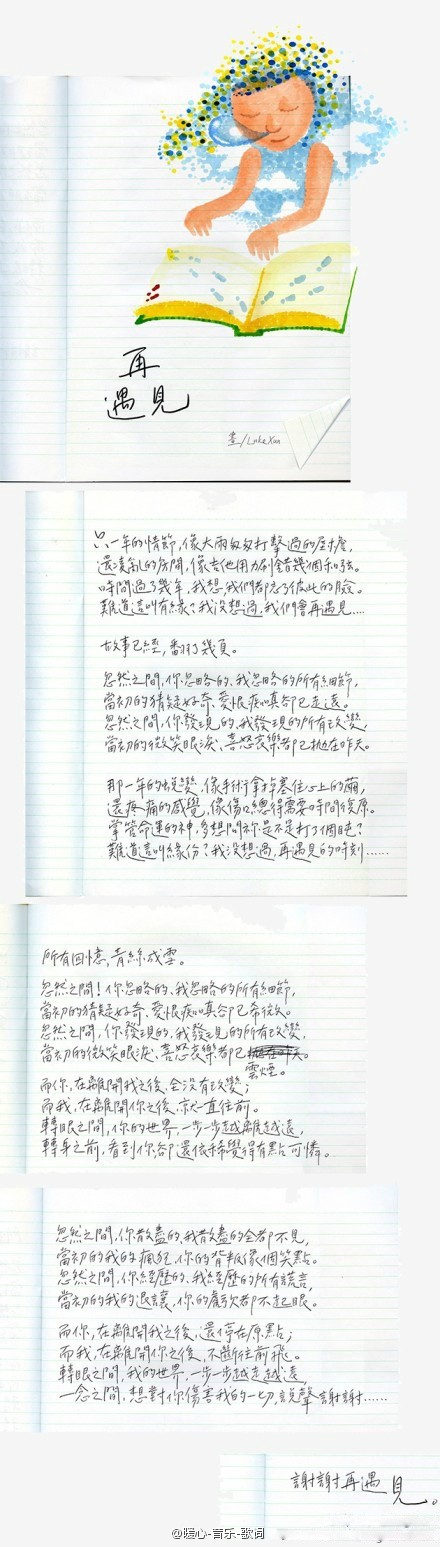 再
遇見
畫/LukeXan
只一年的情節，像大雨匆匆打擊過的屋檐，
還凌亂的房間，像吉他用力刷錯幾個和弦。
時間過了幾年，我想，我們都忘了彼此的臉。
難道這叫有緣？我沒想過，我們會再遇見....
故事已經，翻了幾頁。
忽然之間，你忽略的、我忽略的所有細節，
當初的猜疑好奇、愛恨痴嗔卻已走遠。
忽然之間，你發現的、我發現的所有改變，
當初的微笑眼淚、喜怒哀樂都已拋在昨天。
那一年的蛻變，像手術拿掉塞住心上的繭，
還疼痛的感覺，像傷口總得需要時間復原。
掌管命運的神，多想問祢是不是打了個盹？
難道這叫緣份？我沒想過，再遇見的時刻......
所有回憶，青絲成雪。
忽然之間！你忽略的、我忽略的所有細節，
當初的猜疑好奇、愛恨痴嗔卻已希微。
忽然之間，你發現的、我發現的所有改變，
當初的微笑眼淚、喜怒哀樂都已拋在昨天。
雲煙。
而你，在離開我之後，全沒有改變；
而我，在離開你之後，就一直往前。
轉眼之間，你的世界，一步一步越離越遠，
轉身之前，看到你，卻還依稀覺得有點可憐。
忽然之間，你散盡的、我散盡的全都不見，
當初的我的瘋狂，你的背叛像個笑點。
忽然之間，你經歷的、我經歷的所有謊言，
當初的我的退讓，你的虧欠都不起眼。
而你，在離開我之後，還停在原點；
而我，在離開你之後，不斷往前飛。
轉眼之間，我的世界，一步一步越走越遠，
一念之間，想對你傷害我的一切，說聲謝謝......
謝謝再遇見。
@暖心-音乐-歌词